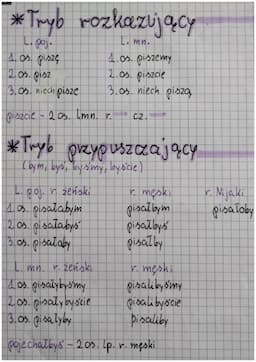 *Tryb rozkazujący
L. poj. L. mn.
1. os. piszę 1. os. piszemy
2. os. pisz 2. os. piszcie
3. os. niech pisze 3. os. niech piszą
piszcie - 2 os. lmn. r. — cz. —
*Tryb przypuszczający
(bym, byś, byśmy, byście)
L. poj. r. żeński r. męski r. Nijaki
1. os. pisałabym pisałbym pisałoby
2. os. pisałabyś pisałbyś
3. os. pisałaby pisałby
L. mn. r. żeński r. męski
1. os. pisałybyśmy pisalibyśmy
2. os. pisałybyście pisalibyście
3. os. pisałyby pisaliby
pojechałbyś - 2 os. lp. r. męski